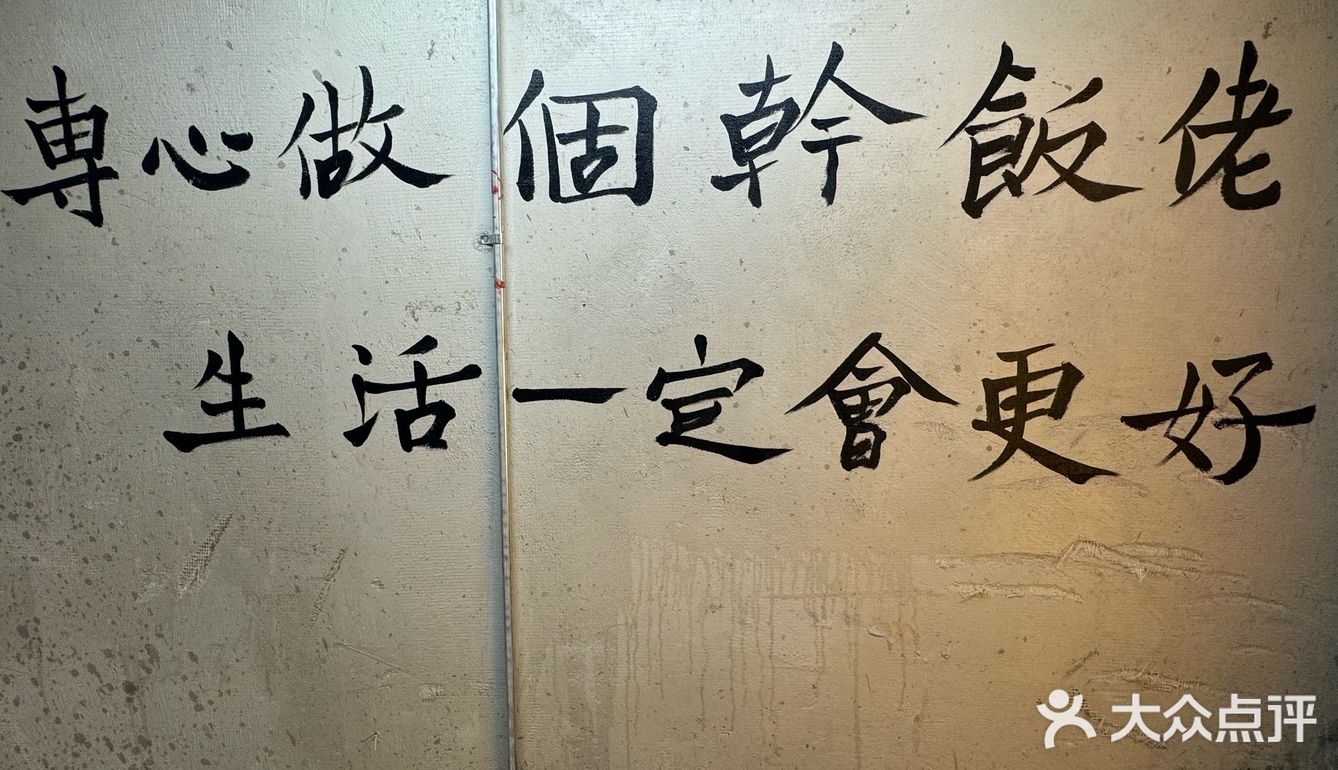 専心做個幹飯佬
生活一定會更好
大众点评